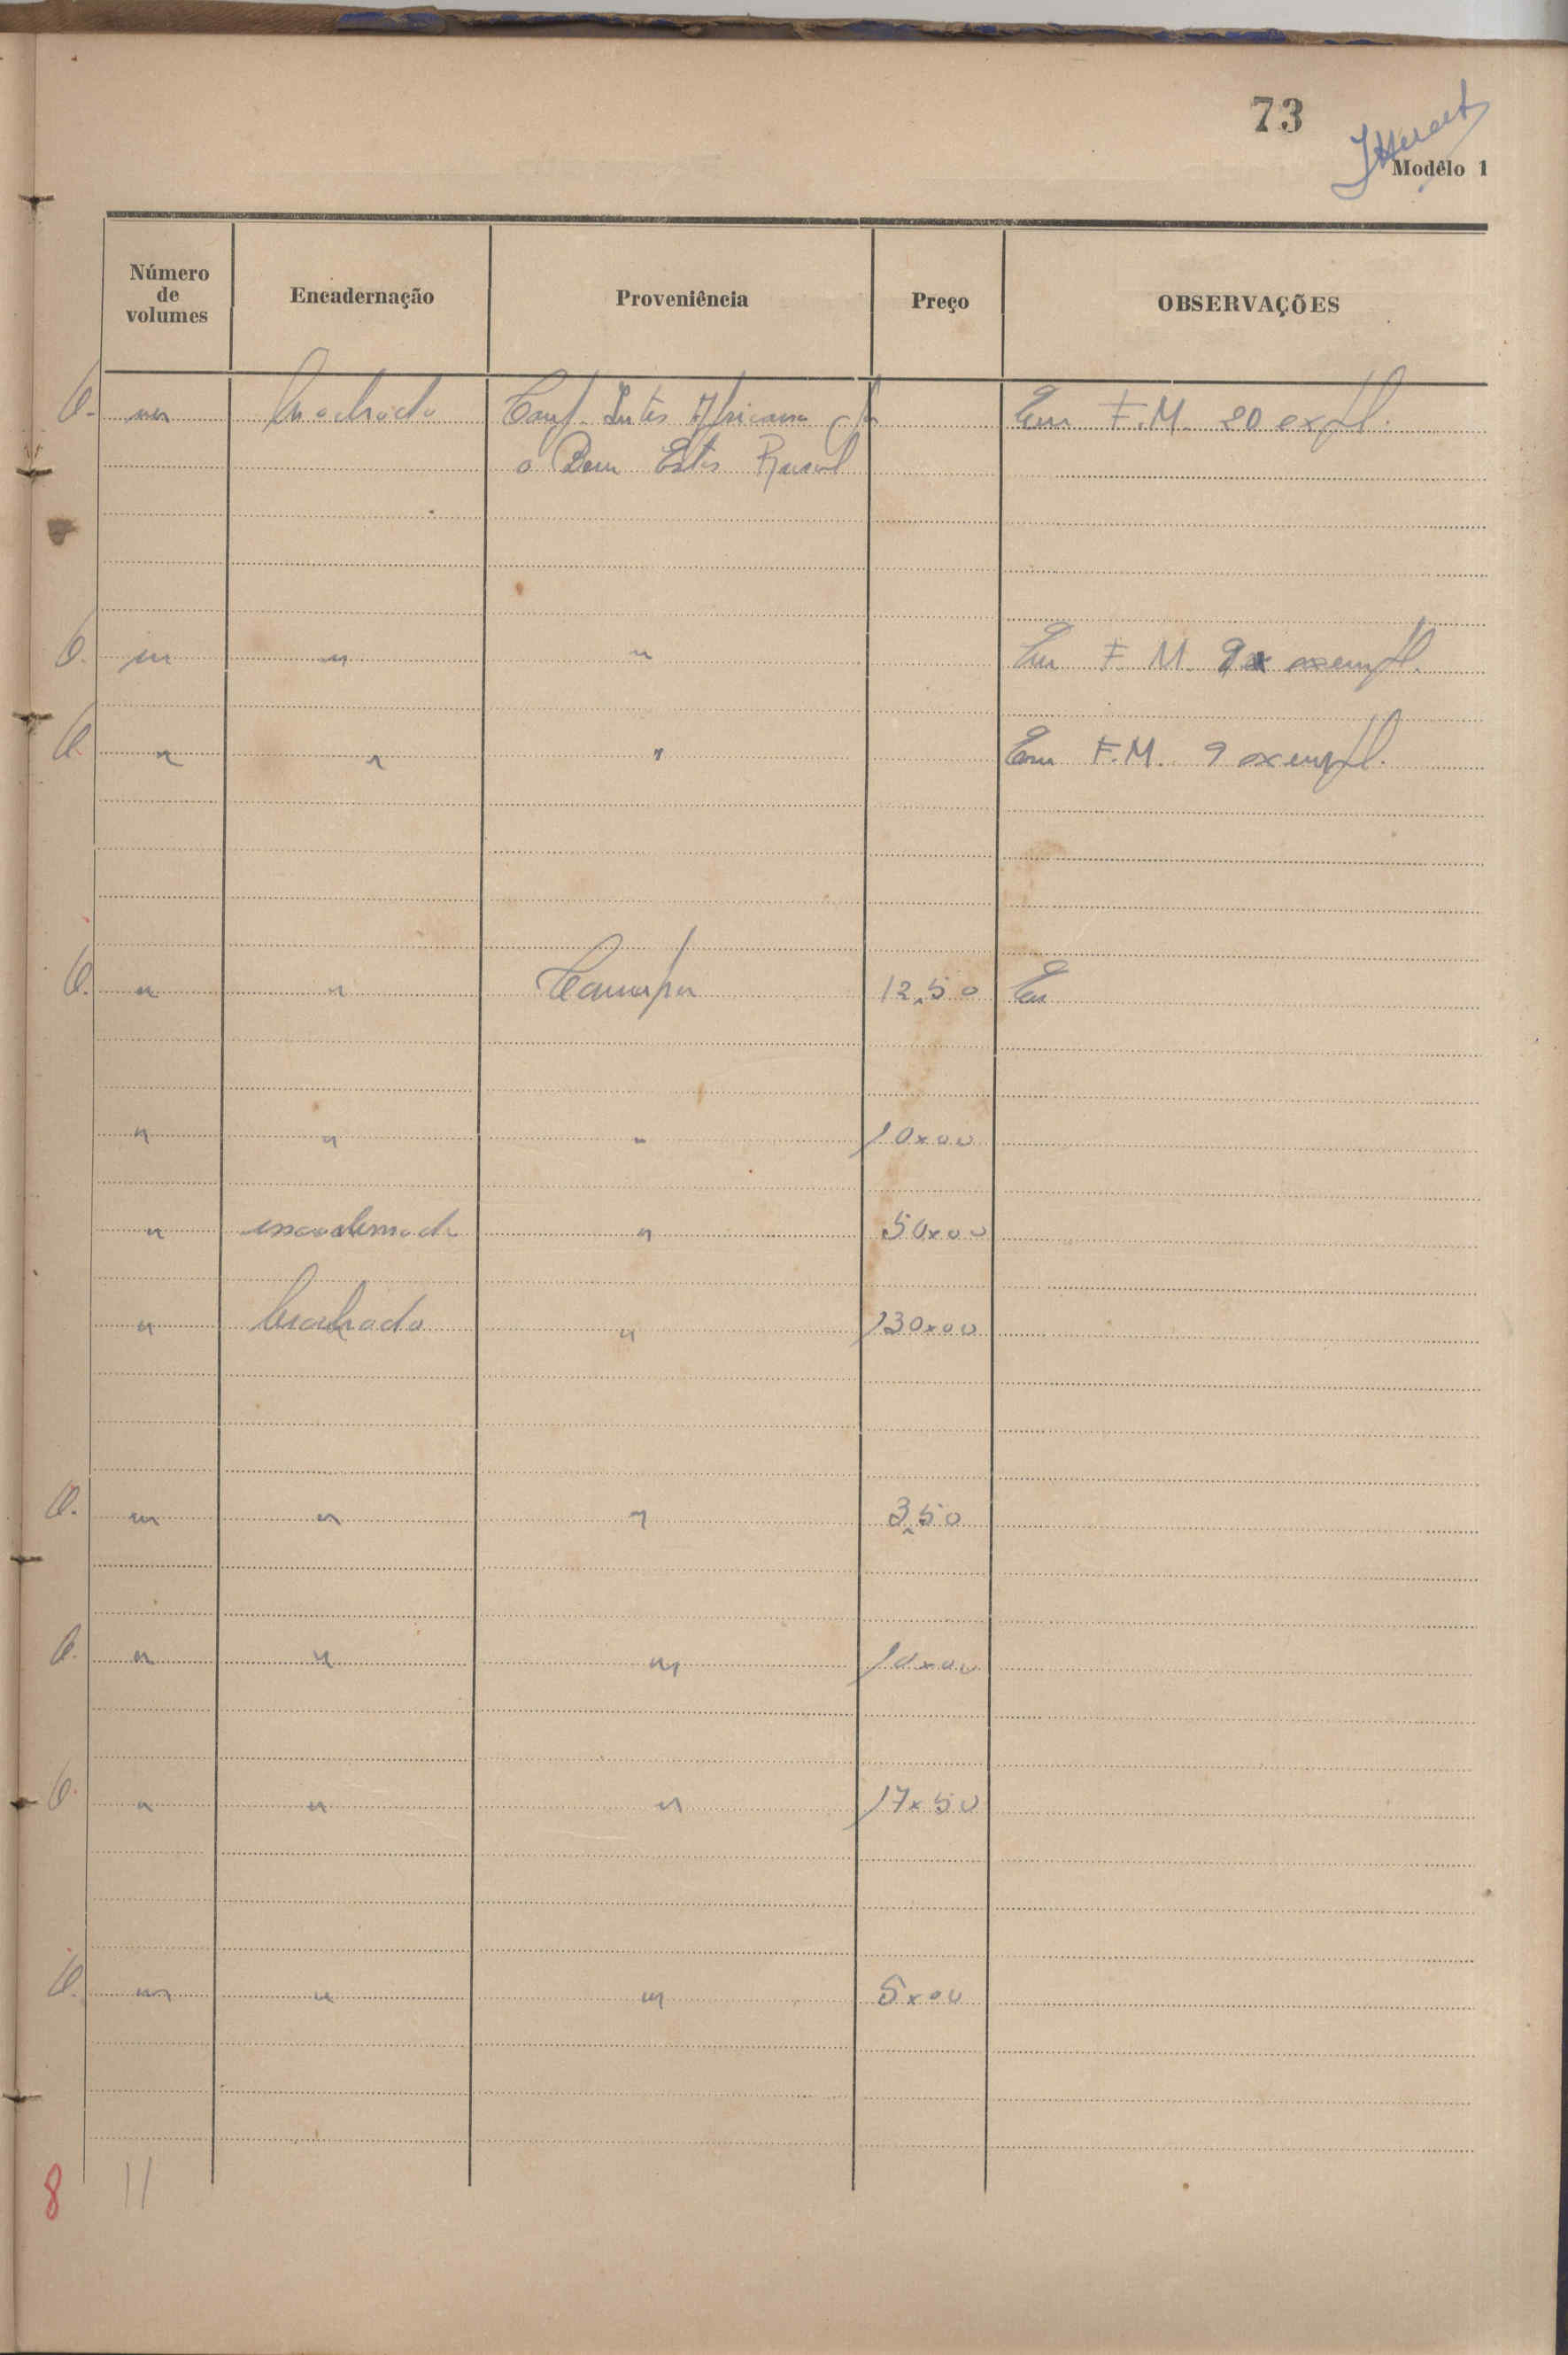 73
Modêlo 1
Número de volumes Encadernação Proveniência Preço OBSERVAÇÕES
O. um brochado Conf. Inter Africana p/a Em F.M. 20 expl.
o Bem Estar Rural
O. um " " Em F.M. 9 exempl.
O. " " " Em F.M. 9 exempl.
O. " " Compra 12,50 Em
" " " 10x00
" encadernado " 50x00
" brochado " 130x00
O. " " " 3,50
O. " " " 10x00
O. " " " 17x50
O. " " " 5x00
8 11